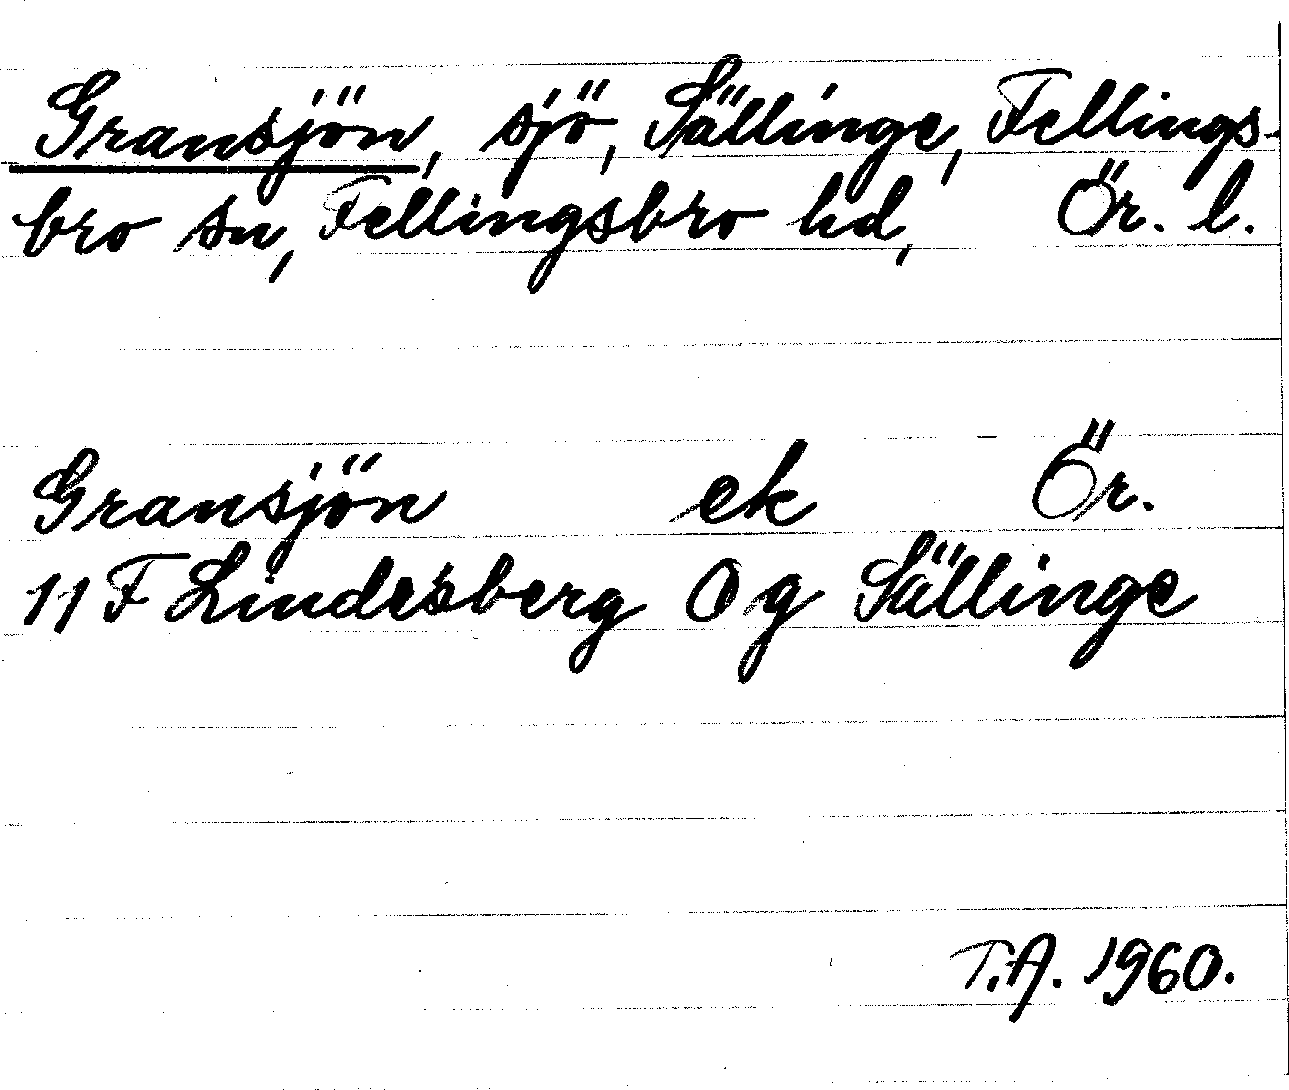 Gransjön, sjö, Sällinge, Fellings-
bro sn, Fellingsbro hd, Ör. l.
Gransjön ek Ör.
11 F Lindesberg 0 g Sällinge
T.A. 1960.